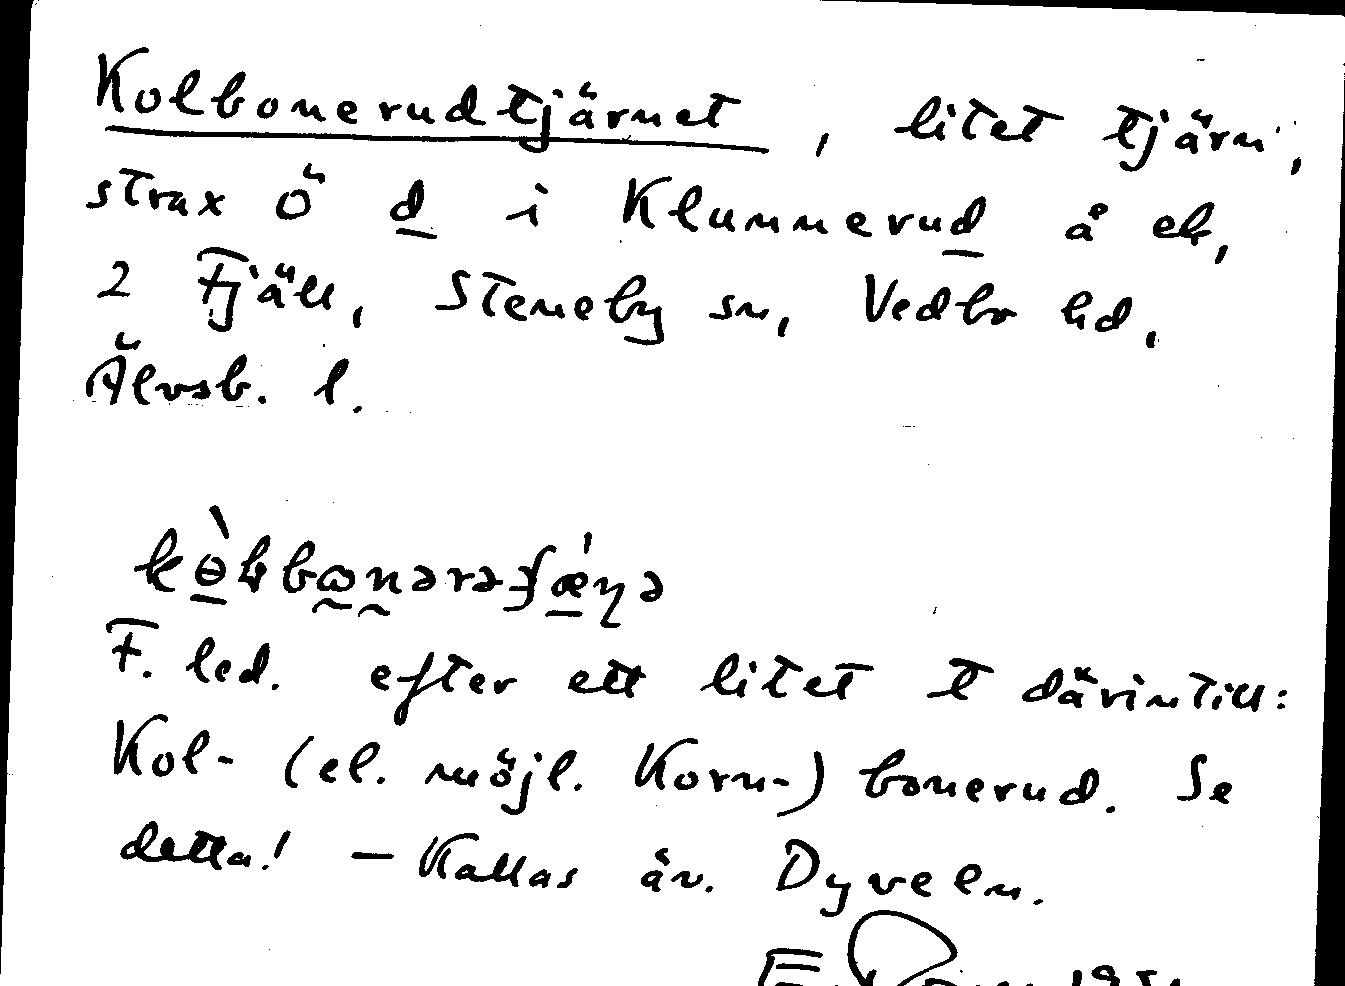 Kolbonerudtjärnet, litet tjärn,
strax ö d i Klunnerud å ek,
2 Fjäll, Steneby sn, Vedbo hd,
Älvsb. l.
F. led. efter ett litet t därintill:
Kol- (el. möjl. Korn-) bonerud. Se
detta! – Kallas äv. Dyveln.